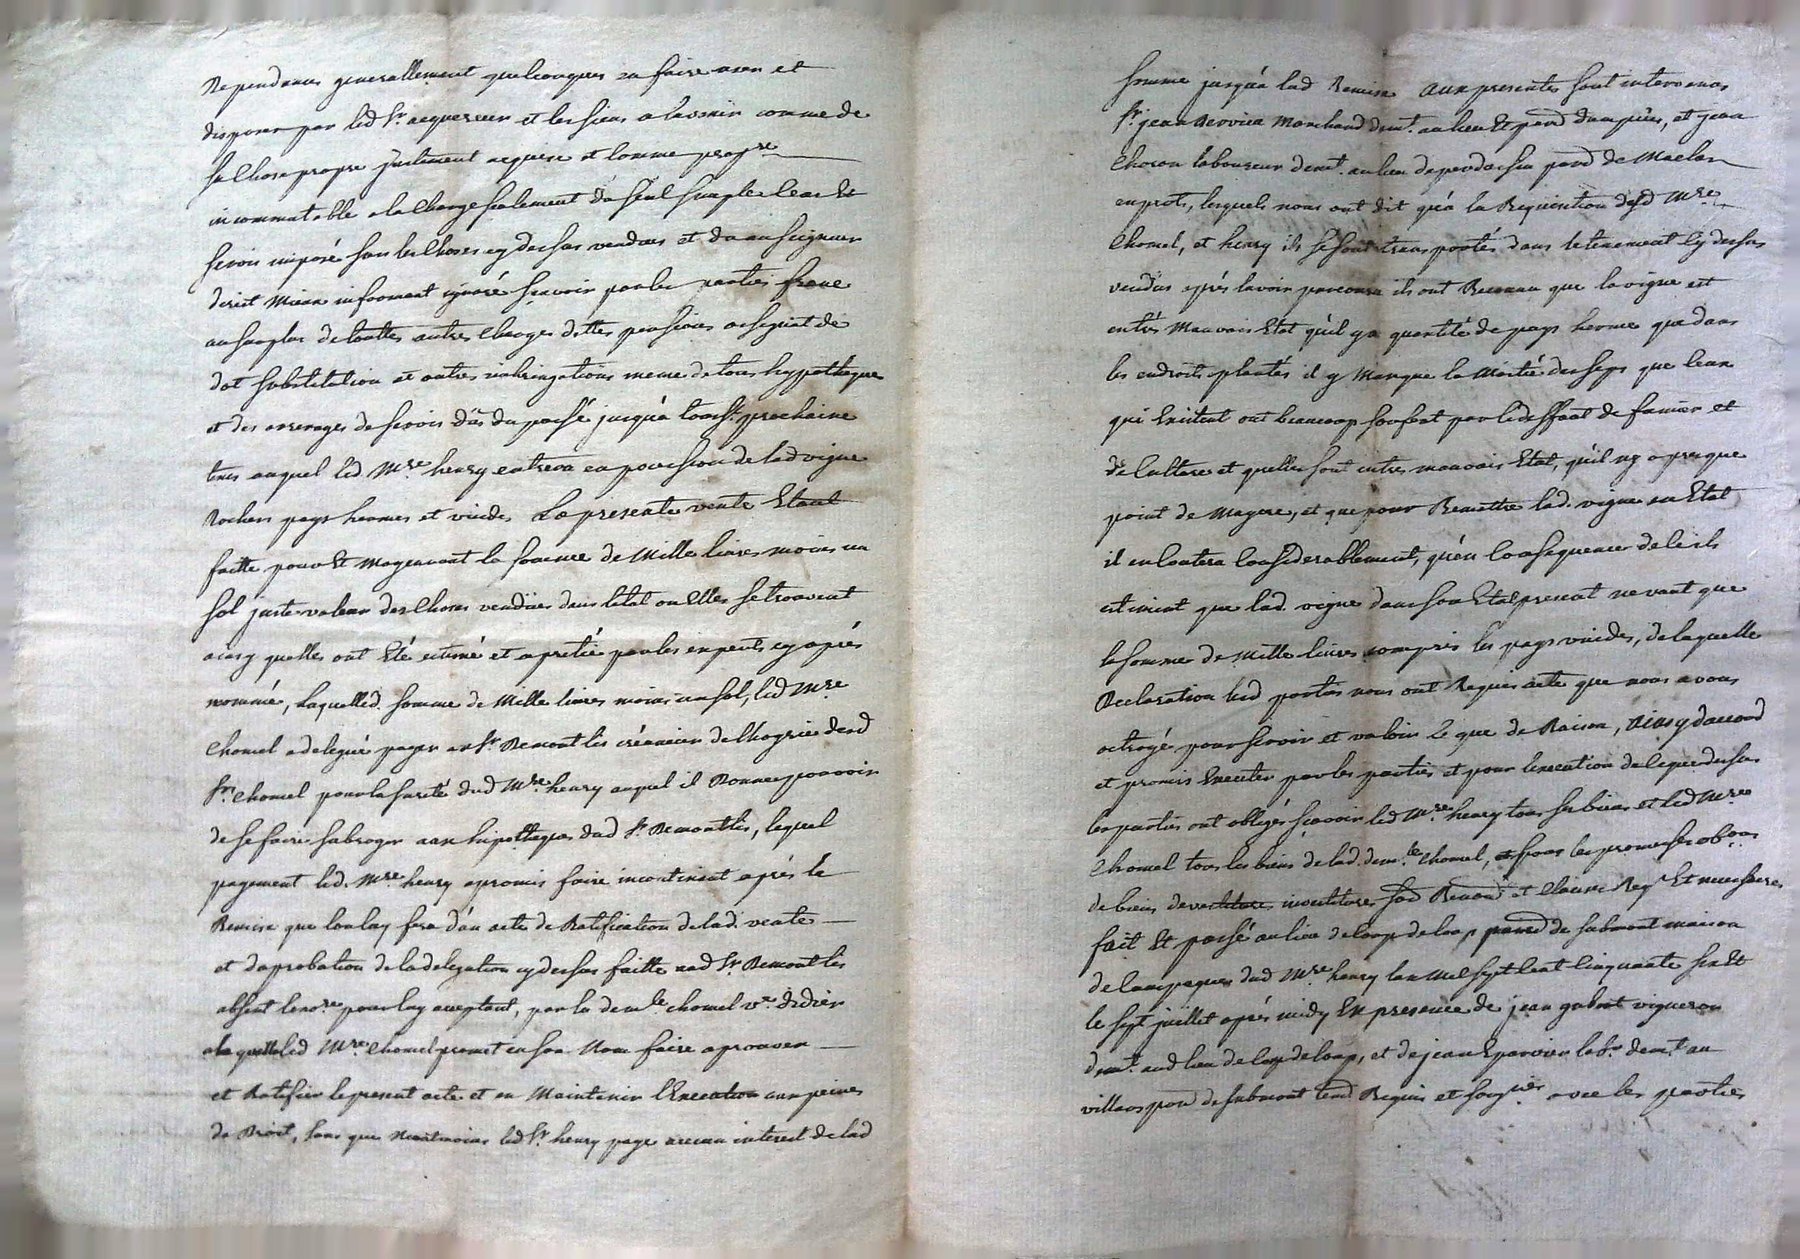 Dependances generallement quelconques en faire user et
disposer par led sr. acquereur et les siens a lavenir comme de
sa Chose propre justement acquise et comme propre
incommutable a la Charge seulement du seul simple Cens Et
servis imposé sur les Choses cy dessus vendues et du au seigneur
direct Mieux informant ignoré scavoir par les parties franc
au surplus de touttes autres Charges dettes pensions
dot substitution et autres meme de tous hyppotheque
et des arrerages de servis dus du passé jusqu'a touss.t prochaine
tems auquel led. Mre henry entrera en possession de lad vigne
Rochers pays hermes et vuides La presente vente Etant
faitte pour Et Moyennant la somme de Mille livres moins un
sol juste valeur des Choses vendües dans letat ou Elles se trouvent
ainsy quelles ont Eté estimé et apretié par les experts cy aprés
nommés, Laquelled. somme de Mille livres moins un sol, led Mre
Chomel a delegué payer au sr. Remontlis créancier de lhoyrie dud
sr. Chomel pour la sureté dud Mre. henry auquel il Donne pouvoir
de se faire subroger aux hipotteques dud sr. Remontlis, lequel
payement led. Mre henry a promis faire incontinent aprés la
Remise que lon luy fera d'un acte de Ratification de lad. vente
et daprobation de la delegation cy dessus faitte aud sr. Remontlis
absent le nore. pour luy acceptant, par la demlle chomel ve. Didier
a la quelle led Mre. Chomel promet en son Nom faire aprouver
et Ratifier le present acte et en Maintenir l'Execution aux peines
de Droit, sans que neantmoins led sr. henry paye aucun interest de lad
somme jusqu'a lad Remise Aux presentes sont intervenus
sr. jean Marchand demt. au lieu Et paroisse et jean
Choron laboureur demt. au lieu de paroisse de Maclas
experts, lesquels nous ont dit qu'a la Requisition desd Mre
Chomel, et henry ils se sont transportés dans le tenement Cy dessus
vendus aprés lavoir parcouru ils ont Reconnu que la vigne est
en trés Mauvais Etat qu'il y a quantité de pays herme que dans
les endroits plantés il y Manque la Moitié des seps que Ceux
qui Existent ont beaucoup soufert par le deffaut de fumier et
de Culture et quelles sont en tres mauvais Etat, qu'il ny a presque
point de Magere, et que pour Remettre lad. vigne en Etat
il en Coutera Considerablement, qu'en Consequence de ce ils
estiment que lad. vigne dans son Etat present ne vaut que
la somme de Mille livres compris les pays vuides, de laquelle
Declaration lesd parties nous ont Requis acte que nous avons
octroyé pour servir et valoir Ce que de Raison, Ainsy d'accord
et promis Executer par les parties et pour lexecution de ce que dessus
les parties ont obligés scavoir led Mre henry tous ses biens et led Mre
Chomel tous les biens de lad. demlle Chomel, sous les promesses obons
de biens investitures et Clause Reqs Et necessaires
fait Et passé au lieu de loup de loup paroisse de maison
de Campagne dud Mre. henry lan Mil sept Cent Cinquante six Et
le sept juillet aprés midy En presence de jean vigneron
demt. aud lieu de loup de loup, et de jean Eparvier labr. demt au
villars paroisse de Requis et soussignés avec les parties